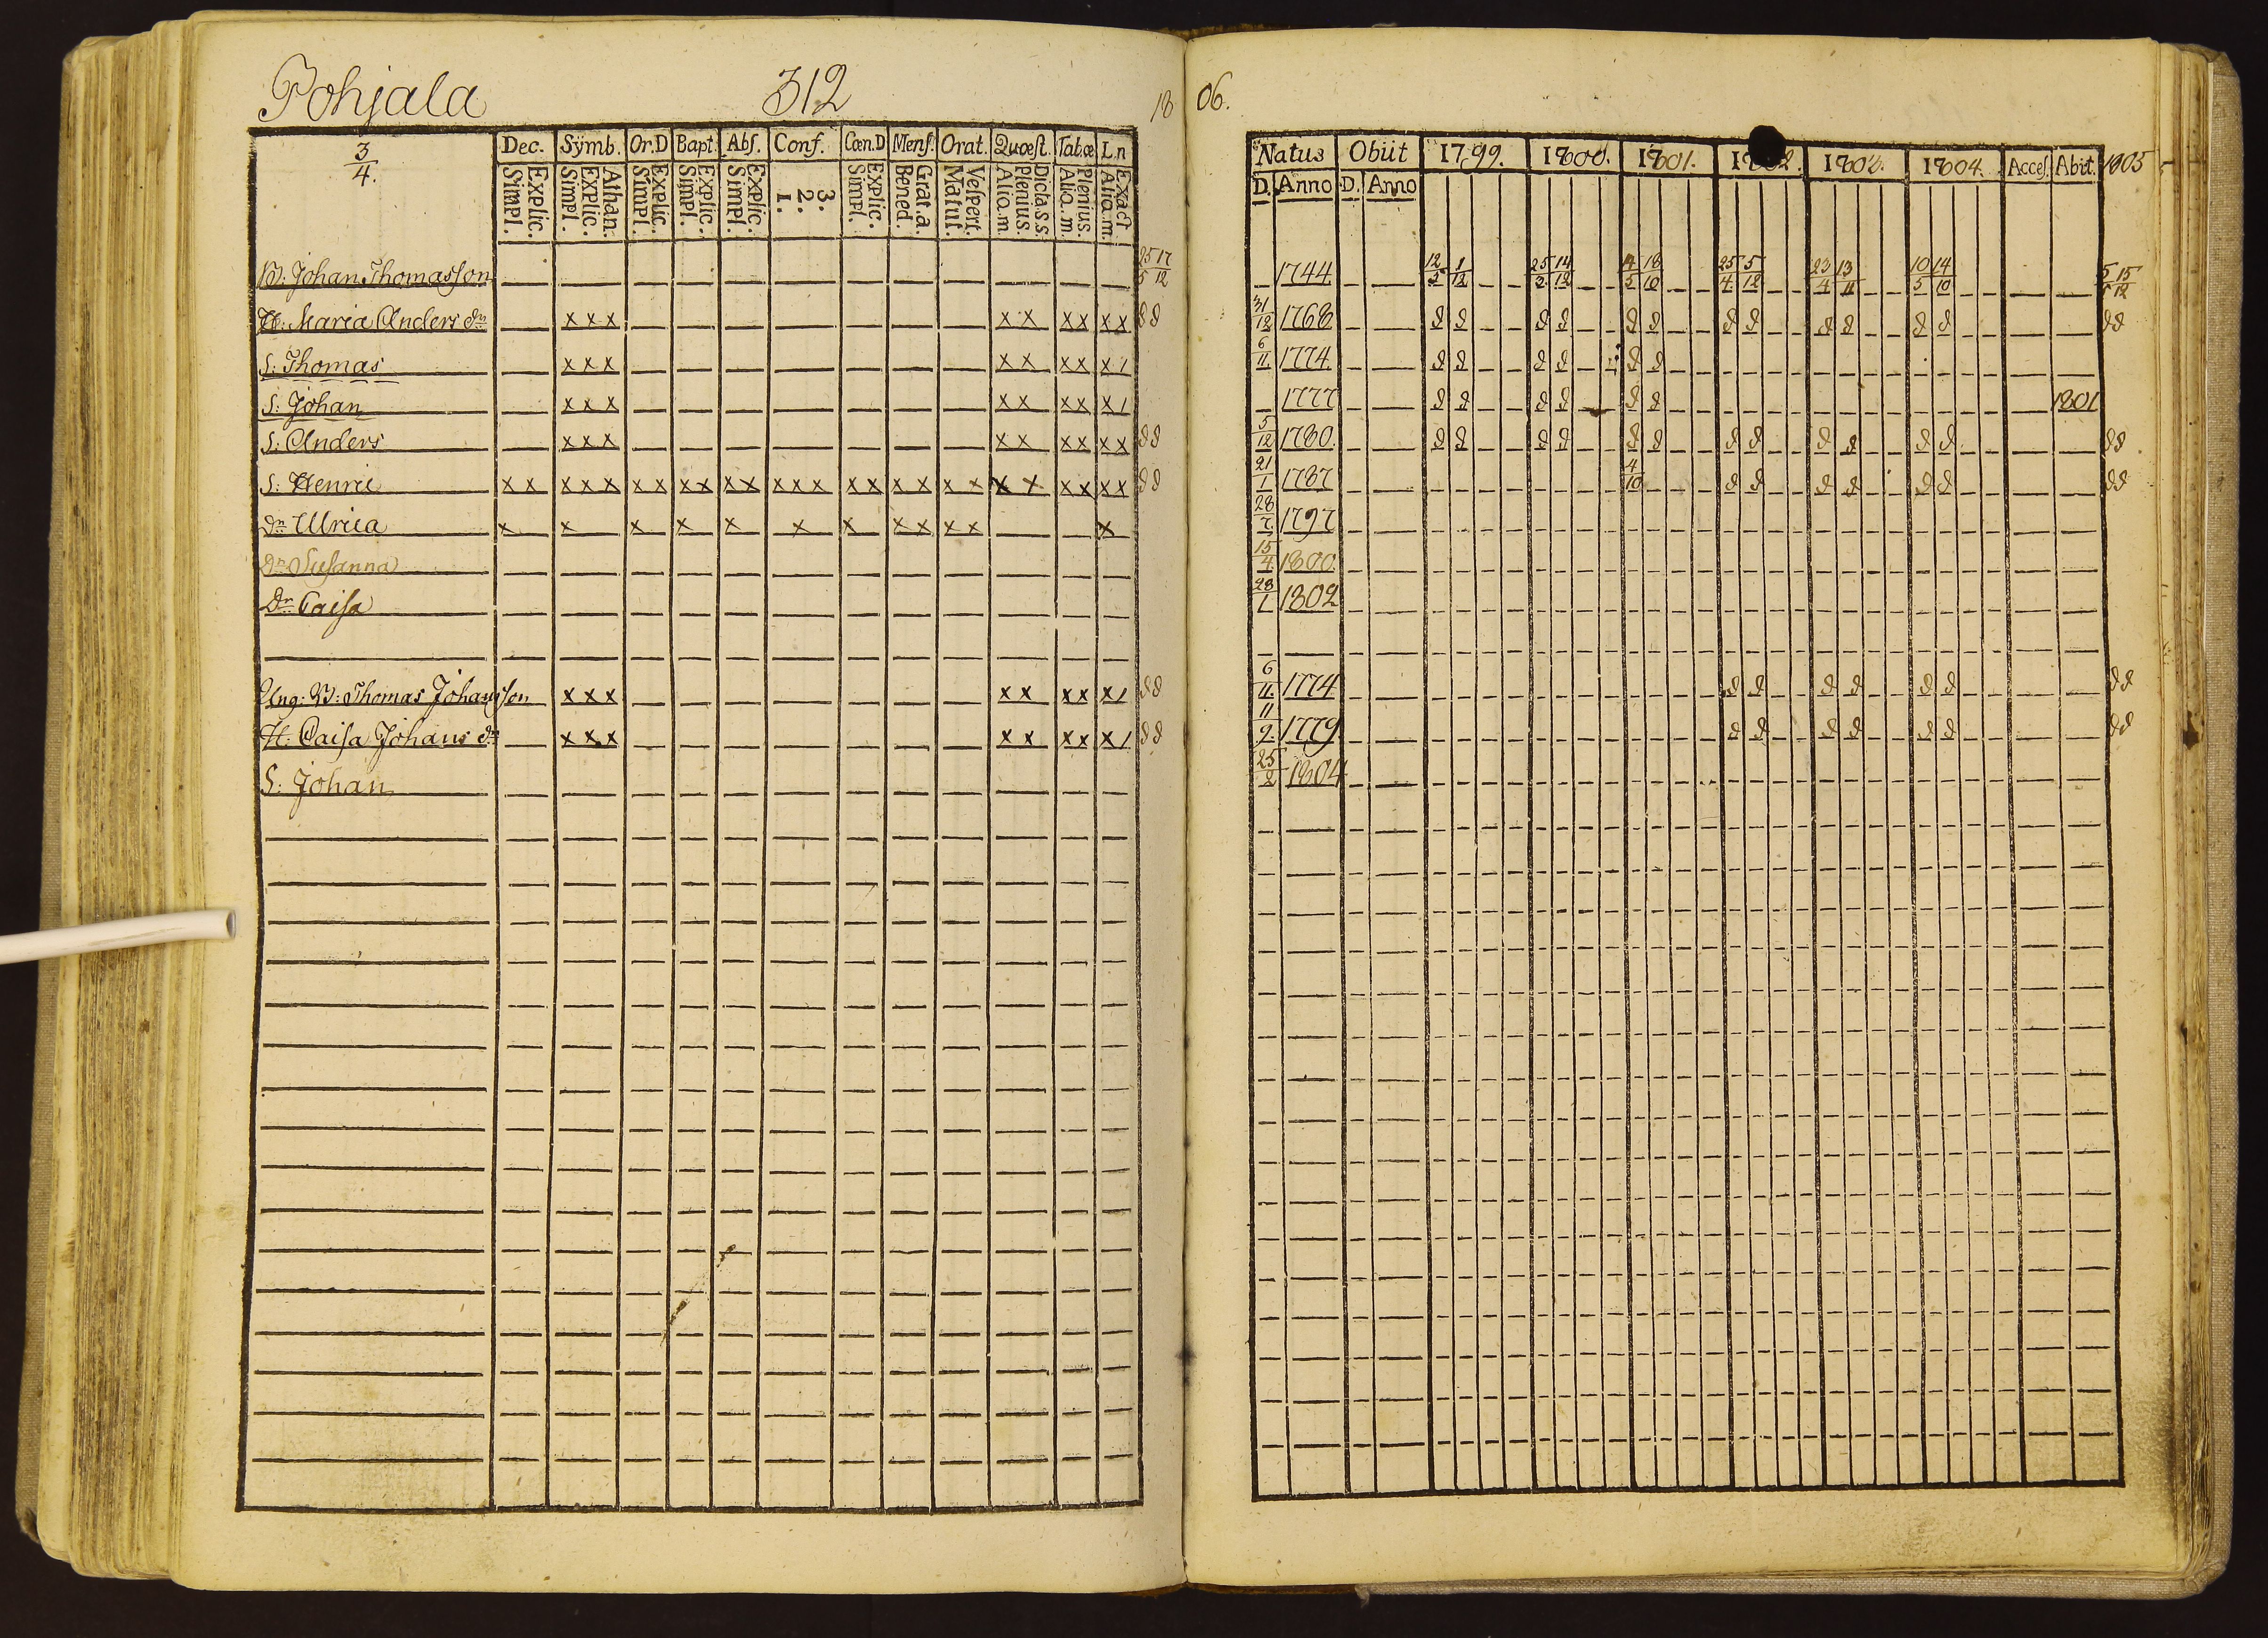 Pohjala 312 18
3/4. Dec. Sÿmb. Or.D Bapt. Abſ. Conf. Cœn.D Menſ. Orat. Quœſt. Tab.œ L.n
Explic. Simpl. Athan. Explic. Simpl. Explic. Simpl. Explic. Simpl. Explic. Simpl. 3. 2. 1. Explic. Simpl. Grat.a. Bened. Veſpert. Matut. Dicta.s.s. Plenius. Alio.m. Plenius. Alia.m. Exact Alia.m.
Johan Thomasſon 25/5 17/12
H: Maria Anders dr x x x x x x x x x d d
S: Thomas x x x x x x x x 1
S: Johan x x x x x x x x 1
S: Anders x x x x x x x x x d d
S: Henric x x x x x x x x x x x x x x x x x x x x x x x x x x d d
Dr Ulrica x x x x x x x x x x x x
Dr Suſanna
Dr Caiſa
Ung: Thomas Johansſon x x x x x x x x 1 d d
H: Caiſa Johans dr x x x x x x x x 1 d d
S: Johan
06.
Natus Obiit 1799. 1800. 1801. 1802. 1803. 1804. Acceſ. Abiit. 1805
D. Anno D. Anno
1744 12/5 1/12 25/3 14/12 4/5 18/10 25/4 5/12 23/4 13/11 10/5 14/10 5/5 15/12
31/12 1768 d d d d d d d d d d d d d d
6/11 1774 d d d d d d
1777 d d d d d d 1801
5/12 1780. d d d d d d d d d d d d d d
21/1 1787 4/10 d d d d d d d d
28/7 1797
15/4 1800
28/1 1802
6/11 1774 d d d d d d d d
11/9 1779 d d d d d d d d
25/2 1804